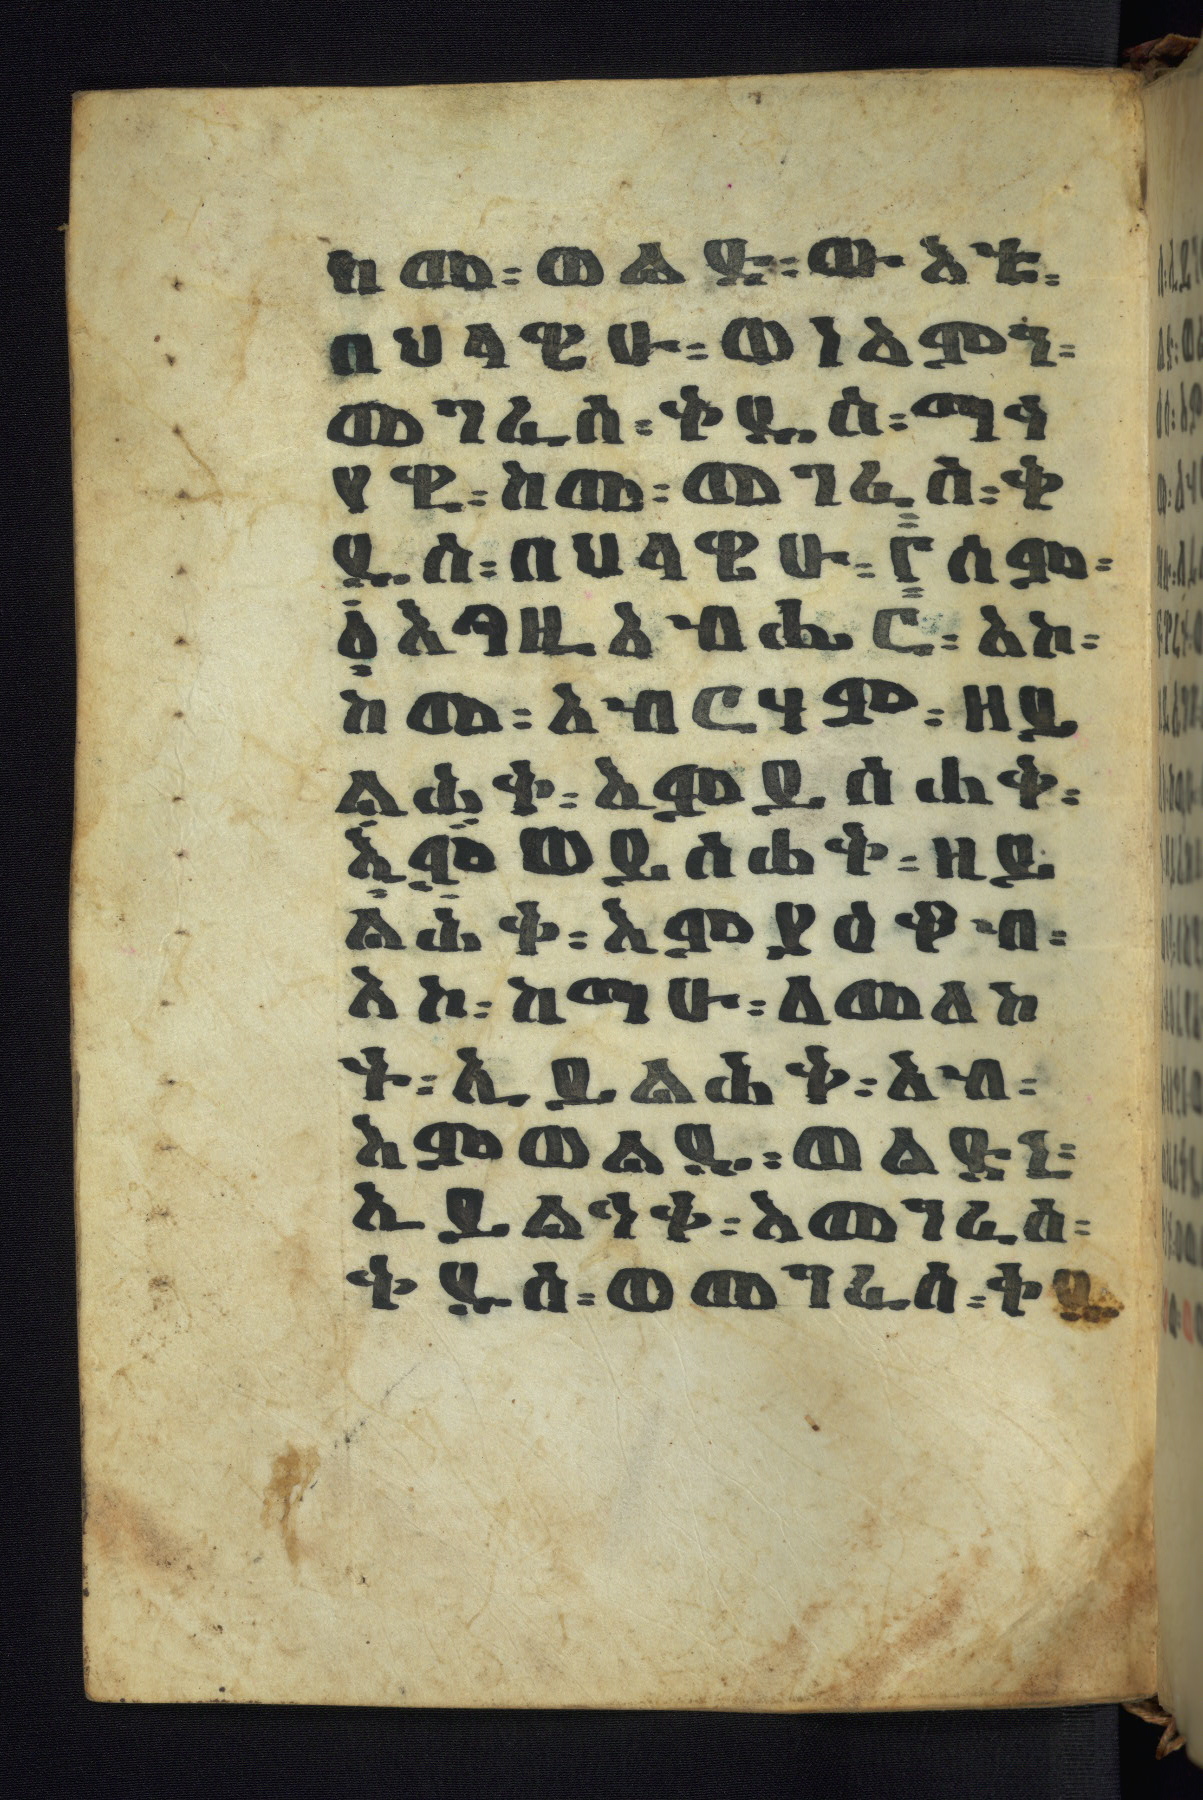 ከመ፡ ወልድ፡ ውእቱ፡
በህላዌሁ፡ ወነአምን፡
መንፈስ፡ ቅዱስ፡ ማኅ
የዊ፡ ከመ፡ መንፈስ፡ ቅ
ዱስ፡ በህላዌሁ፡ ፫ስም፡
፩እግዚአብሔር፡ አኮ፡
ከመ፡ አብርሃም፡ ዘይ
ልሕቅ፡ እምይስሐቅ፡
እምወይስሐቅ፡ ዘይ
ልሕቅ፡ እምያዕቆብ፡
አኮ፡ ከማሁ፡ ለመለኮ
ት፡ ኢይልሕቅ፡ አብ፡
እምወልዱ፡ ወልድኒ፡
ኢይልኅቅ፡ እመንፈስ፡
ቅዱስ፡ ወመንፈስ፡ ቅዱ